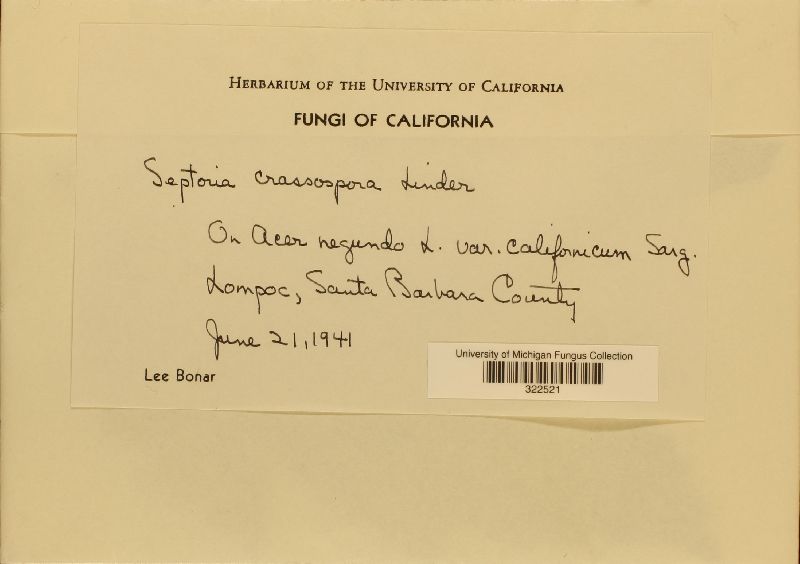 Herbarium of the University of California
FUNGI OF CALIFORNIA
Septoria crassospora Linder
On Acer negundo L. var. californicum Sarg.
Lompoc, Santa Barbara County
June 21, 1941
Lee Bonar
University of Michigan Fungus Collection
322521